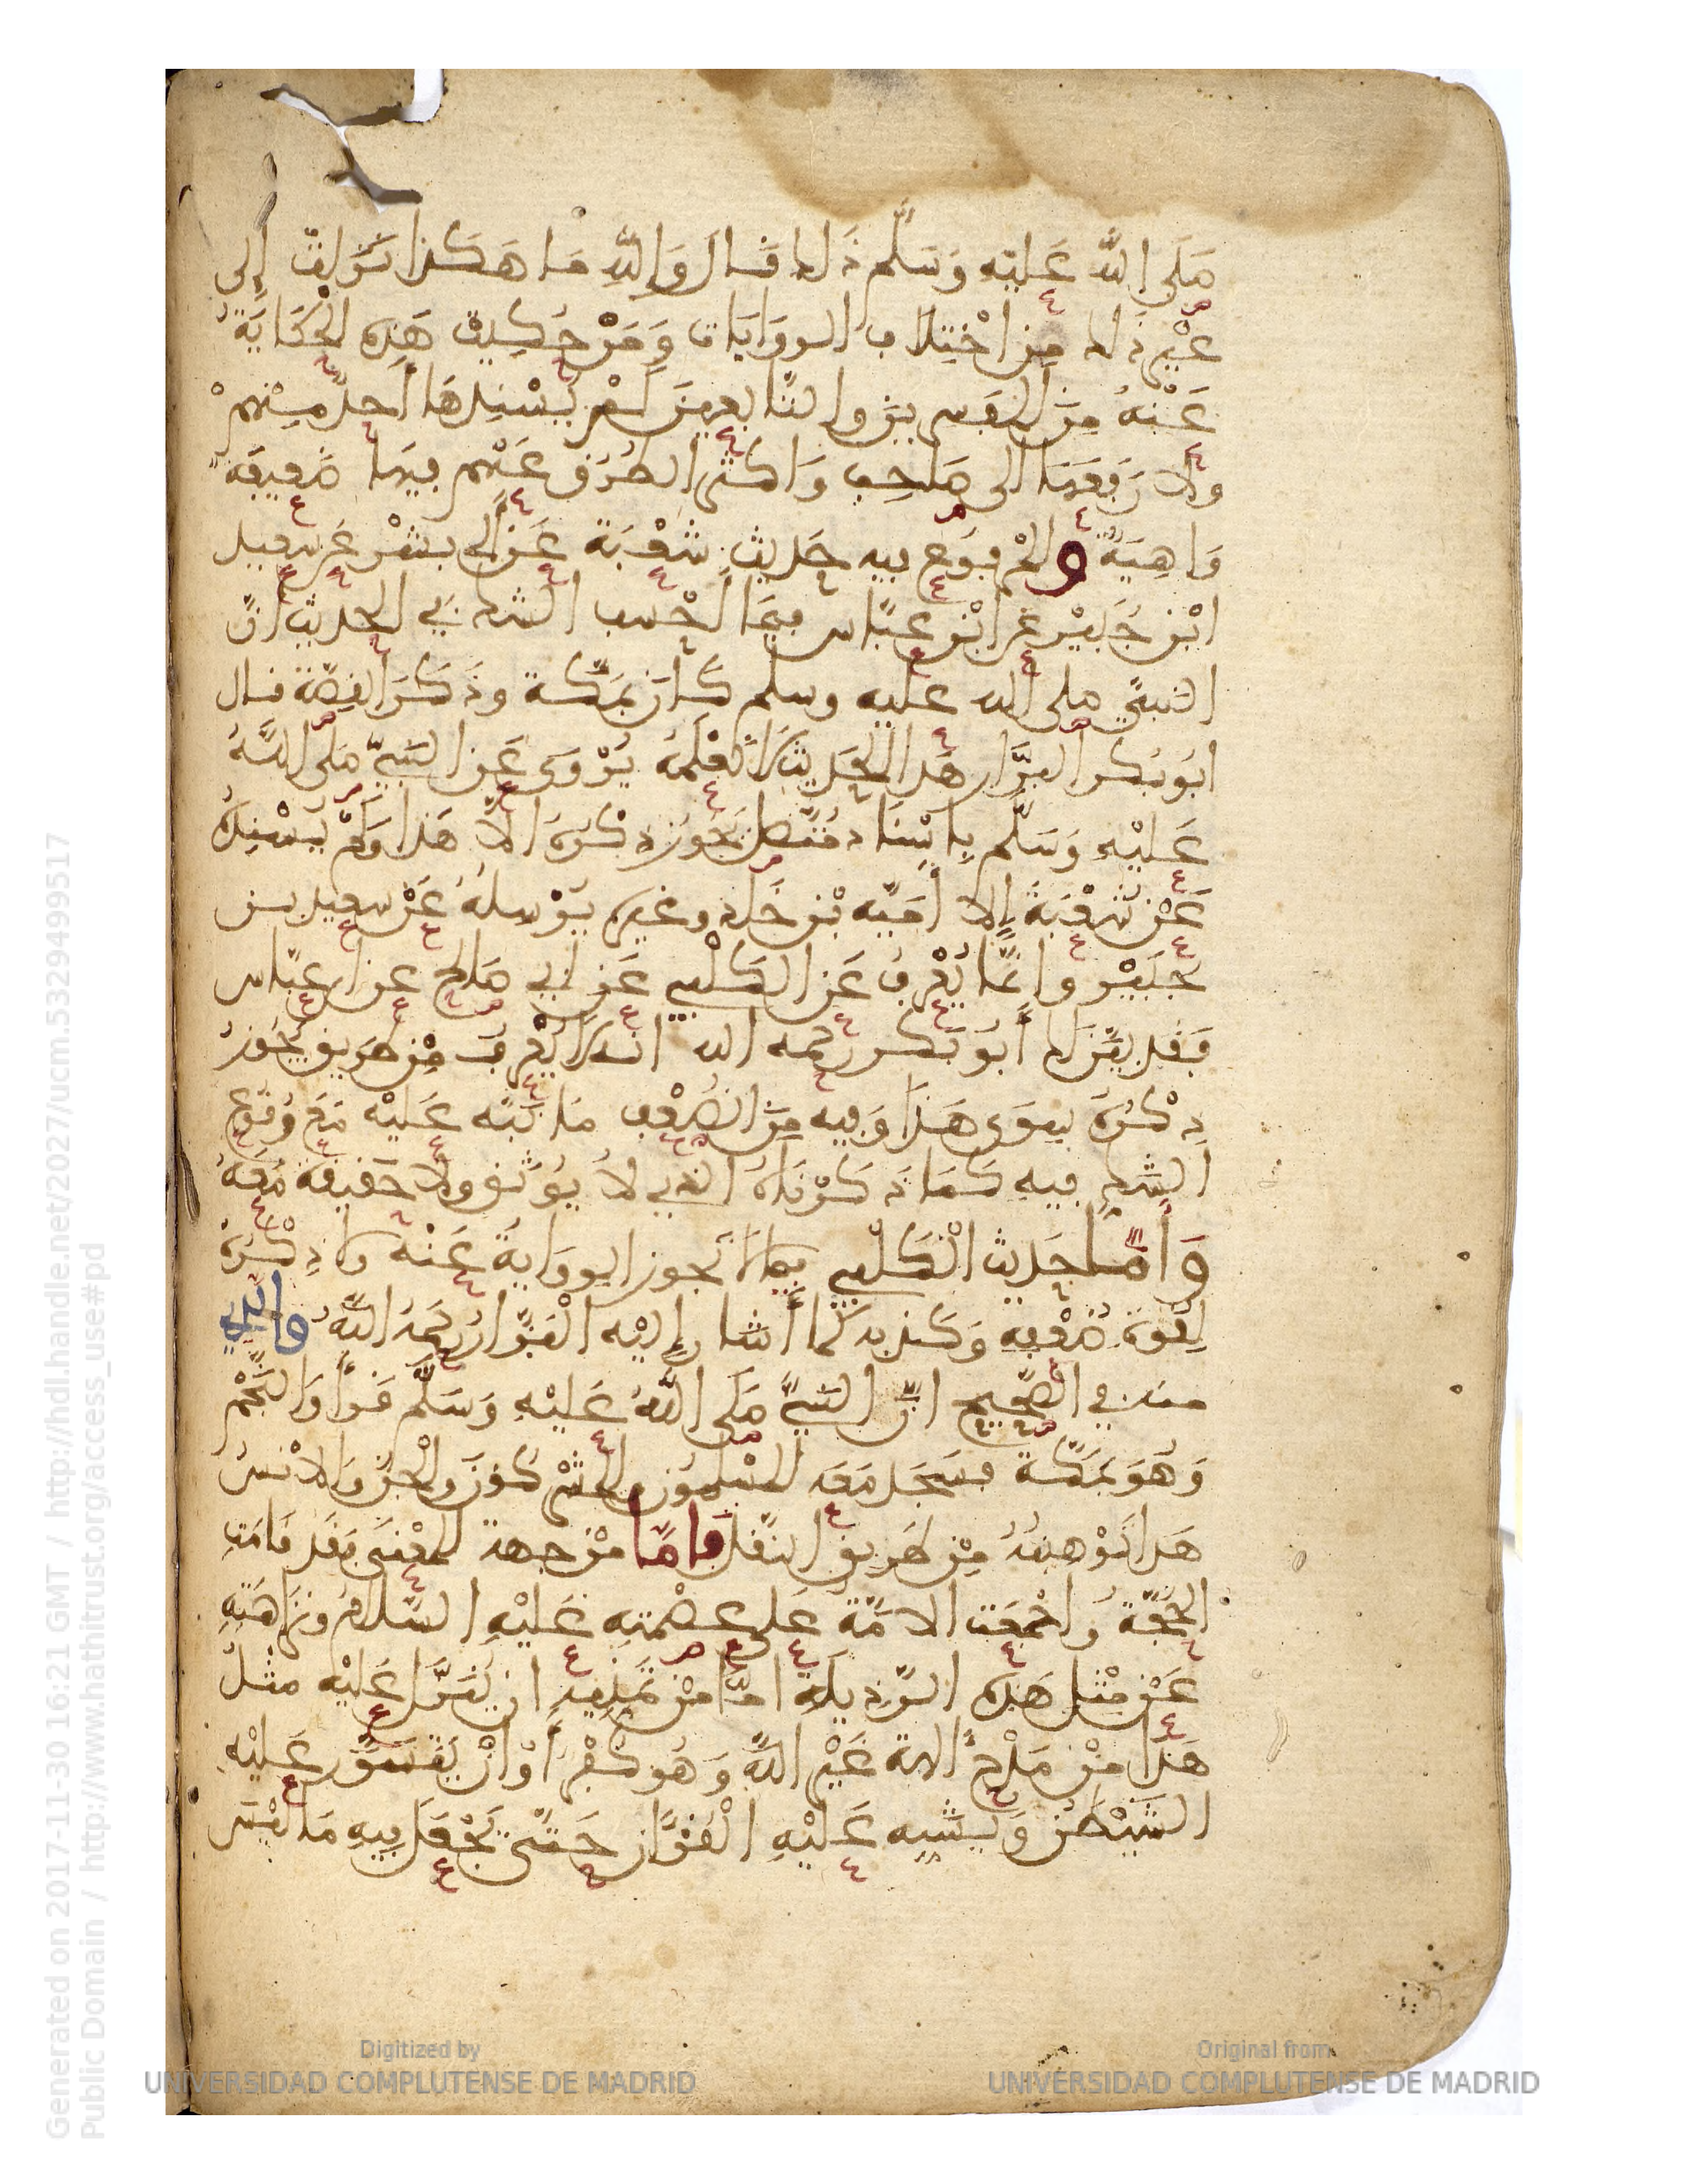 صَلَى اللّه عَليْهِ وَسَلّم ذَلك قَال وَاللّهِ مَا هَكذا نَزَلتْ إلى
غَيْرِ ذَلك مِن اخْتِلاف الروَايَات وَمَنْ حُكِيتْ هَذِه الحْكَايَةُ
عَنْهُ مِنَ المُفسرينَ والتّابعينَ لَمْ يُسْنِدهَا أحدٌ مِنْهمْ
ولا رَفَعَهَا الى صَاحِبٍ وَاكثر الطُرُق عَنْهم فيهَا ضَعيفَةٌ
وَاهِيَةٌ والمْرفوَع فيه حَديث شُعْبَة عَن أبي بشْر عَن سعيد
ابْن جُبَيْر عَن ابْن عبّاس فيمَا أحْسب الشك في الحديث انَّ
النبيّ صلى الله عليه وسلم كَانَ بمَكّة وذَكَرَ القِصّة قال
ابُو بَكر البزّار هَذا الحَديث لَا نَعْلَمهُ يُرْوَى عَن النَّبيّ صَلّى اللَّهُ
عَليْهِ وَسَلّم بإسْنَاد مُتّصل يَجُوز ذِكْرُهُ الاّ هَذا وَلَمْ يُسْنِدْهُ
عَنْ شُعْبَةَ إلا أمَيّة بْن خَالد وغيره يُرْسِلهُ عَنْ سعيد بن
جُبَيْر وانمّا يُعْرف عَن الكَلْبي عَن أبي صَالح عن ابن عبّاس
فَقد بيّن لك أبُو بَكر رحمه الله انه لَا يُعْرَف مِنْ طَريق يَجُوزُ
ذِكْرُهُ سِوَى هَذَا وَفيه مِنَ الضُعْف مَا نَبّه عَليْه مَعَ وُقُوع
الشكِ فيه كَمَا ذَكرْنَاهُ الذي لاَ يُوثَق ولا حَقيقَة مَعَهُ
وَأمّا حَديث الْكَلبي فممَّا لَا تَجوز الروَايةُ عَنْه ولا ذِكْرُهُ
لِقُوة ضُعْفِه وَكذبه كَما أشَار إليْه الْبَزّارُ رحمَهُ اللّهُ والذي
منه في الصّحيح انّ النَّبيّ صَلّى اللَّهُ عَليْهِ وَسَلَّم قَرأ وَالنَّجْم
وَهُوَ بمَكّة فَسَجَد مَعَه المسْلمُون والمُشْركُونَ والجنّ وَالانْسُ
هَذا تَوْهينُهُ مِن طَريق النّقل فأمّا مِنْ جهة المعْنَى فقَد قَامَتِ
الحُجّةُ وَاجْمَعَت الامّة عَلى عِصْمَتِه عَليْهِ السّلامُ ونَزَاهَتِهِ
عَنْ مثْل هَذه الرّذيلَةِ امّا منْ تَمَنّيه ان يُنَزَّل عَليْه مثلُ
هَذا منْ مَدْح الهة غَيْر اللّه وَهُو كُفْر أوْ أنْ يَتَسَوّر عَليْهِ
الشّيْطَنُ وَيشبه عَليْهِ الْقُرْآنَ حَتّى يَجْعَل فيهِ مَا ليْسَ
Generated on 2017-11-30 16:21 GMT / http://hdl.handle.net/2027/ucm.5329499517
Public Domain / http://www.hathitrust.org/access_use#pd
Digitized by
UNIVERSIDAD COMPLUTENSE DE MADRID
Original from
UNIVERSIDAD COMPLUTENSE DE MADRID